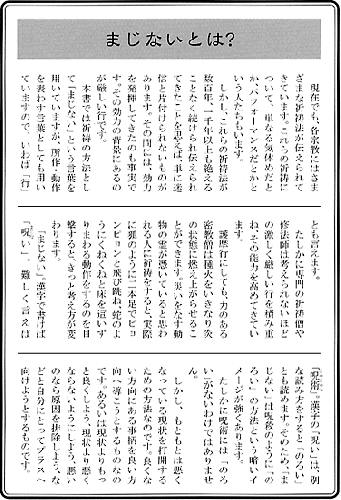 まじないとは？
現在でも、各宗教にはさま
ざまな祈祷法が伝えられて
きています。これらの祈祷に
ついて、単なる気休めだと
か、パフォーマンスだとかと
いう人たちもいます。
しかしこれらの祈祷法が
数百年、一千年以上も絶える
ことなく続けられ伝えられ
てきたことを思えば、単に迷
信と片付けられないものが
あります。その間には、効力
を発揮してきたのも事実で
す。その効力の背景にあるの
が厳しい行です。
本書では祈祷の方法とし
て「まじない」という言葉を
用いていますが、所作・動作
を表わす言葉としても用い
ています。いわば「行」
とも言えます。
たしかに専門の祈祷僧や
修法師は考えられないほど
の激しく厳しい行を積み重
ね、その能力を高めてきてい
ます。
護摩行にしても、力のある
密教僧は護摩木をいきなり炎
の状態に燃え上がらせるこ
とができます。災いをなす動
物の霊が憑いていると思わ
れる人に祈祷をすると、実際
に狐のように二本足でピョ
ンピョンと飛び跳ね、蛇のよ
うにくねくねと床を這いず
りまわる動作をするのを目
撃すると、きっと考え方が変
わります。
「まじない」、漢字で書けば
「呪い」、難しく言えば
「呪術」。漢字の「呪い」は、別
な読み方をすると「のろい」
とも読めます。そのため、「ま
じない」は呪咀のように「の
ろい」の方法という暗いイ
メージが強くあります。
たしかに呪術には「のろ
い」がないわけではありませ
ん。
しかし、もともとは悪く
なっている現状を打開する
ための方法なのです。良くな
い方向にある事柄を良い方
向へ導こうとするものなの
です。あるいは現状よりもっ
と良くしよう、現状より悪く
ならないようにしよう、悪い
のなら原因を排除しような
どと自分にとってプラスへ
向けようとするものです。